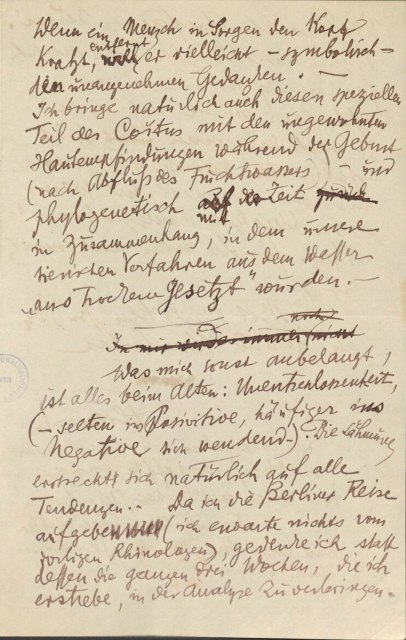 Wenn ein Mensch in Sorgen den Kopf
kratzt, entfernt er vielleicht – symbolisch –
den unangenehmen Gedanken. –
Ich bringe natürlich auch diesen speziellen
Teil des Coitus mit den ungewohnten
Hautempfindungen während der Geburt
(nach Abfluß des Fruchtwassers) – und
phylogenetisch mit der Zeit
in Zusammenhang, in dem unsere
tierischen Vorfahren aus dem Wasser
„aufs Trockene gesetzt" wurden. –
Was mich sonst anbelangt,
ist alles beim Alten: Unentschlossenheit,
(– selten ins Positive, häufiger ins
Negative sich wendend –). Die Lähmung
erstreckt sich natürlich auf alle
Tendenzen. – Da ich die Berliner Reise
aufgebe (ich erwarte nichts vom
dortigen Rhinologen), gedenke ich statt
dessen die ganzen drei Wochen, die ich
erstrebe, in der Analyse zu verbringen. –